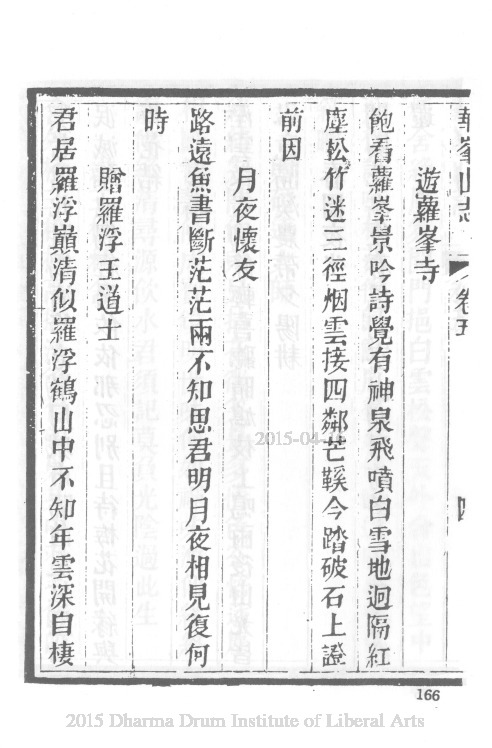 華峯山志
卷五
四
遊蘿峯寺
飽看蘿峯景吟詩覺有神泉飛噴白雪地迥隔紅
塵松竹迷三徑烟雲接四鄰芒鞵今踏破石上證
前因
月夜懷友
路遠魚書斷茫茫兩不知思君明月夜相見復何
時
贈羅浮王道士
君居羅浮巔清似羅浮鶴山中不知年雲深自棲
166
2015 Dharma Drum Institute of Liberal Arts